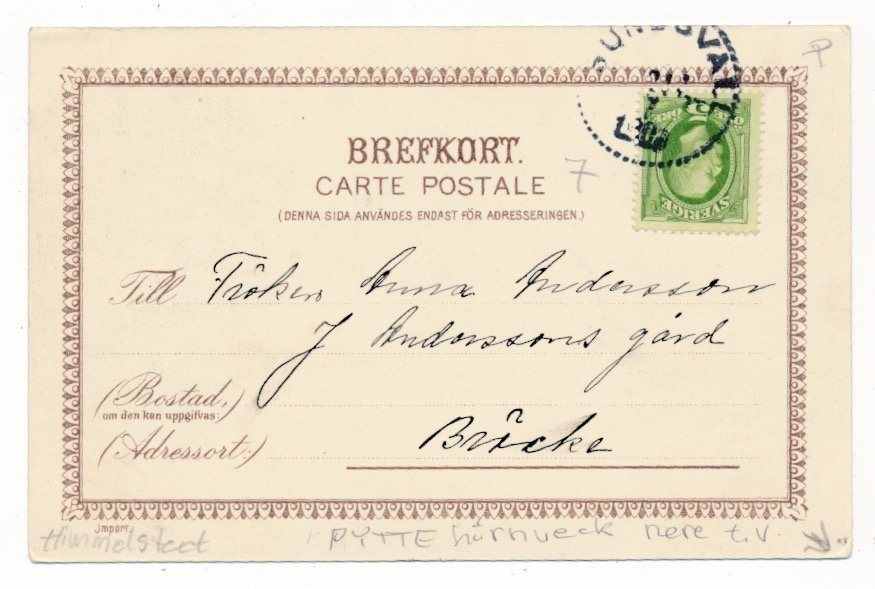 SUNDSVALL
P
BREFKORT.
CARTE POSTALE
7
(DENNA SIDA ANVÄNDES ENDAST FÖR ADRESSERINGEN.)
SVERIGE
Till Fröken Anna Andersson
J Anderssons gård
(Bostad,)
om den kan uppgifvas:
(Adressort:) Bräcke
Import.
Himmelstect
PYTTE hörnveck nere t.v.